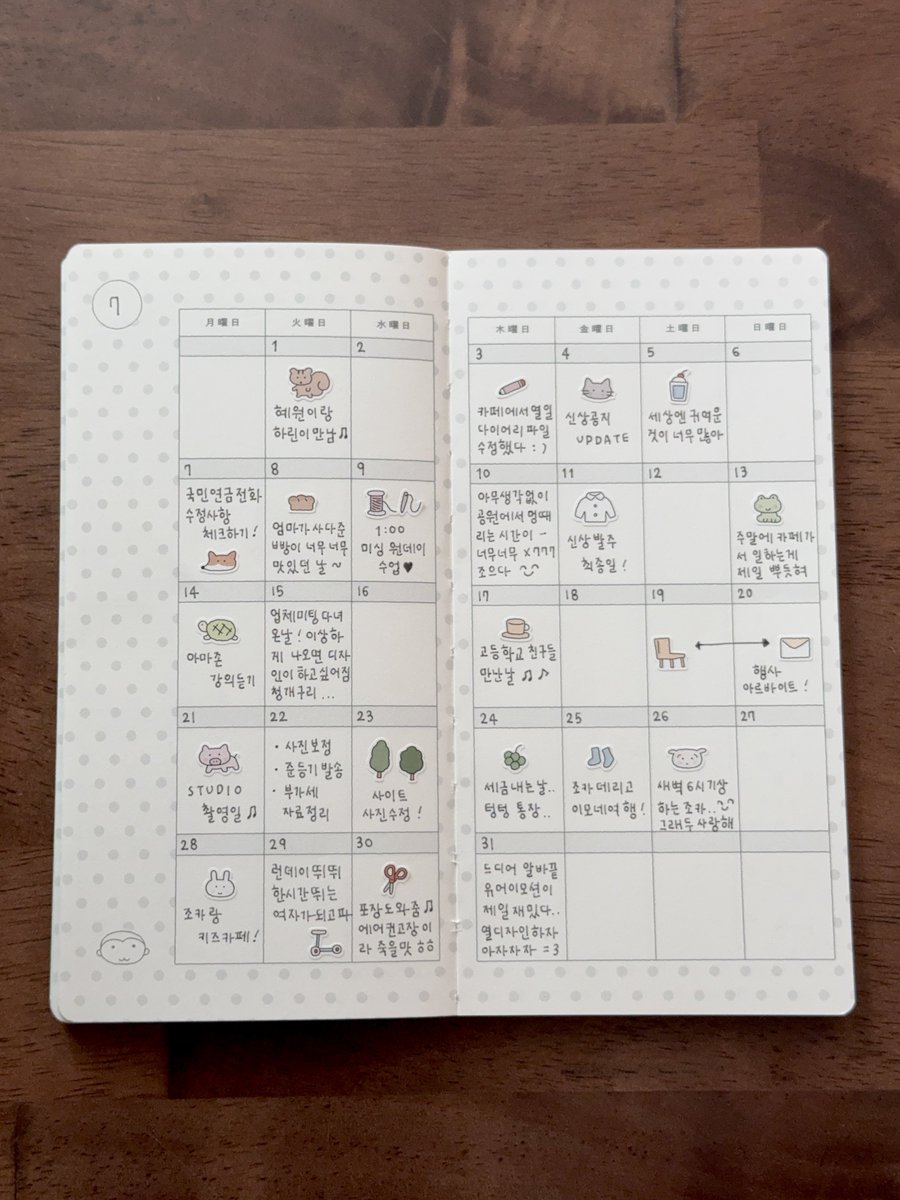 7
月曜日 火曜日 水曜日 木曜日 金曜日 土曜日 日曜日
1
혜원이랑
하린이 만남♫
2
3
카페에서 열일
다이어리 파일
수정했다 : )
4
신상공지
UPDATE
5
세상엔 귀여운
것이 너무 많아
6
7
국민연금전화
수정사항
체크하기!
8
엄마가 사다준
빵이 너무 너무
맛있던 날 ~
9
1:00
미싱 원데이
수업♥
10
아무생각없이
공원에서 멍때
리는 시간이 -
너무너무 X777
조으다
11
신상 발주
최종일!
12
13
주말에 카페가
서 일하는게
제일 뿌듯혀
14
아마존
강의듣기
15
업체미팅 다녀
온날! 이상하
게 나오면 디자
인이 하고싶어짐
청개구리 ...
16
17
고등학교 친구들
만난날 ♫ ♪
18
19
20
행사
아르바이트!
21
STUDIO
촬영일 ♫
22
· 사진보정
· 준등기 발송
· 부가세
자료정리
23
사이트
사진수정!
24
세금내는날..
텅텅 통장..
25
조카 데리고
이모네여행!
26
새벽 6시 기상
하는 조카..
그래두 사랑해
27
28
조카랑
키즈카페!
29
런데이 뛰뛰
한시간 뛰는
여자가되고파
30
포장 도와줌♫
에어컨고장이
라 죽을맛 ㅎㅎ
31
드디어 알바끝
유어이모션이
제일 재밌다..
열디자인하자
아자자자 =3